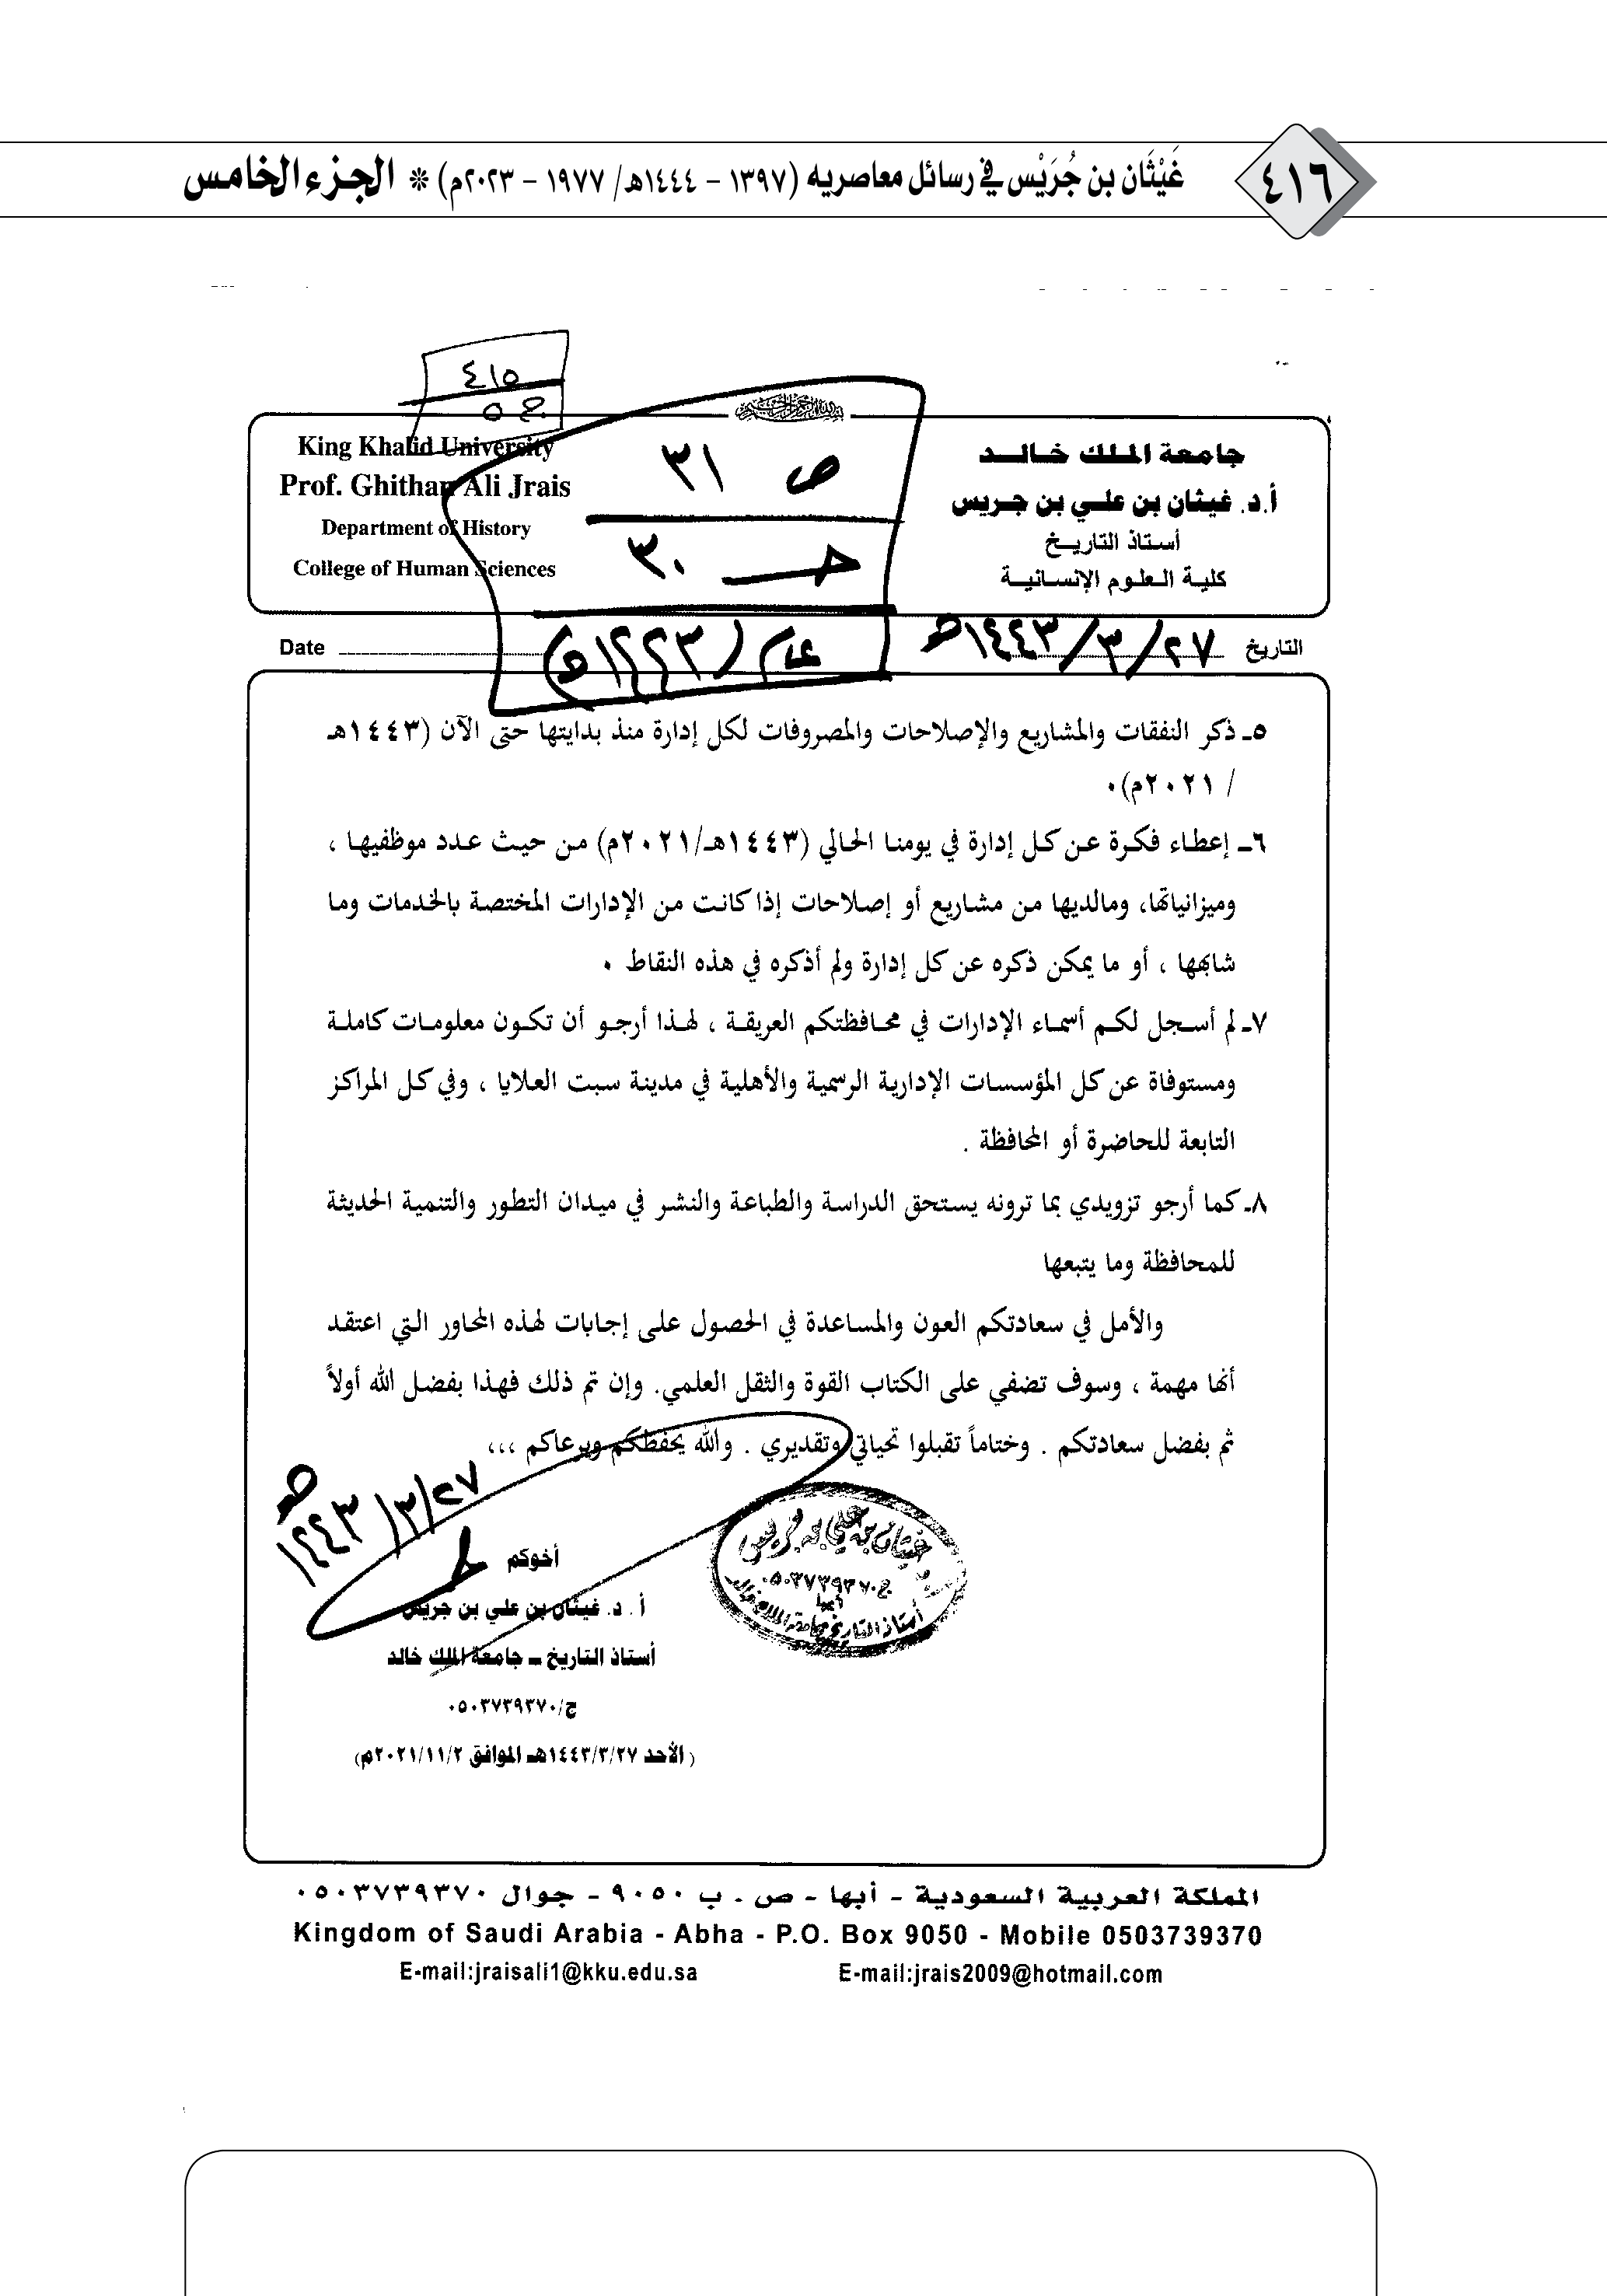 ٤١٦
غَيْثَان بن جُرَيْس في رسائل معاصريه (١٣٩٧ - ١٤٤٤هـ/ ١٩٧٧ - ٢٠٢٣م) * الجزء الخامس
٤١٥
ج ٥
جامعة الملك خالد
أ.د. غيثان بن علي بن جريس
أستاذ التاريخ
كلية العلوم الإنسانية
ص ٣١
ج ٣٠
عام / ١٤٤٣هـ
King Khalid University
Prof. Ghithan Ali Jrais
Department of History
College of Human Sciences
التاريخ ٢٧/٣/١٤٤٣هـ
Date
٥ـ ذكر النفقات والمشاريع والإصلاحات والمصروفات لكل إدارة منذ بدايتها حتى الآن (١٤٤٣هـ
/ ٢٠٢١م)٠
٦ـ إعطاء فكرة عن كل إدارة في يومنا الحالي (١٤٤٣هـ/٢٠٢١م) من حيث عدد موظفيها ،
وميزانياتها، ومالديها من مشاريع أو إصلاحات إذا كانت من الإدارات المختصة بالخدمات وما
شابهها ، أو ما يمكن ذكره عن كل إدارة ولم أذكره في هذه النقاط ٠
٧ـ لم أسجل لكم أسماء الإدارات في محافظتكم العريقة ، لهذا أرجو أن تكون معلومات كاملة
ومستوفاة عن كل المؤسسات الإدارية الرسمية والأهلية في مدينة سبت العلايا ، وفي كل المراكز
التابعة للحاضرة أو المحافظة .
٨ـ كما أرجو تزويدي بما ترونه يستحق الدراسة والطباعة والنشر في ميدان التطور والتنمية الحديثة
للمحافظة وما يتبعها
والأمل في سعادتكم العون والمساعدة في الحصول على إجابات لهذه المحاور التي اعتقد
أنها مهمة ، وسوف تضفي على الكتاب القوة والثقل العلمي. وإن تم ذلك فهذا بفضل الله أولاً
ثم بفضل سعادتكم . وختاماً تقبلوا تحياتي وتقديري . والله يحفظكم ويرعاكم ،،،
٢٧/٣/١٤٤٣هـ
غيثان بن علي بن جريس
ج.٠٥٠٣٧٣٩٣٧٠
أبها
أستاذ التاريخ بجامعة الملك خالد
أخوكم
أ . د. غيثان بن علي بن جريس
أستاذ التاريخ ـ جامعة الملك خالد
ج/٠٥٠٣٧٣٩٣٧٠
( الأحد ١٤٤٣/٣/٢٧هـ الموافق ٢٠٢١/١١/٢م)
المملكة العربية السعودية - أبها - ص . ب ٩٠٥٠ - جوال ٠٥٠٣٧٣٩٣٧٠
Kingdom of Saudi Arabia - Abha - P.O. Box 9050 - Mobile 0503739370
E-mail:jraisali1@kku.edu.sa E-mail:jrais2009@hotmail.com